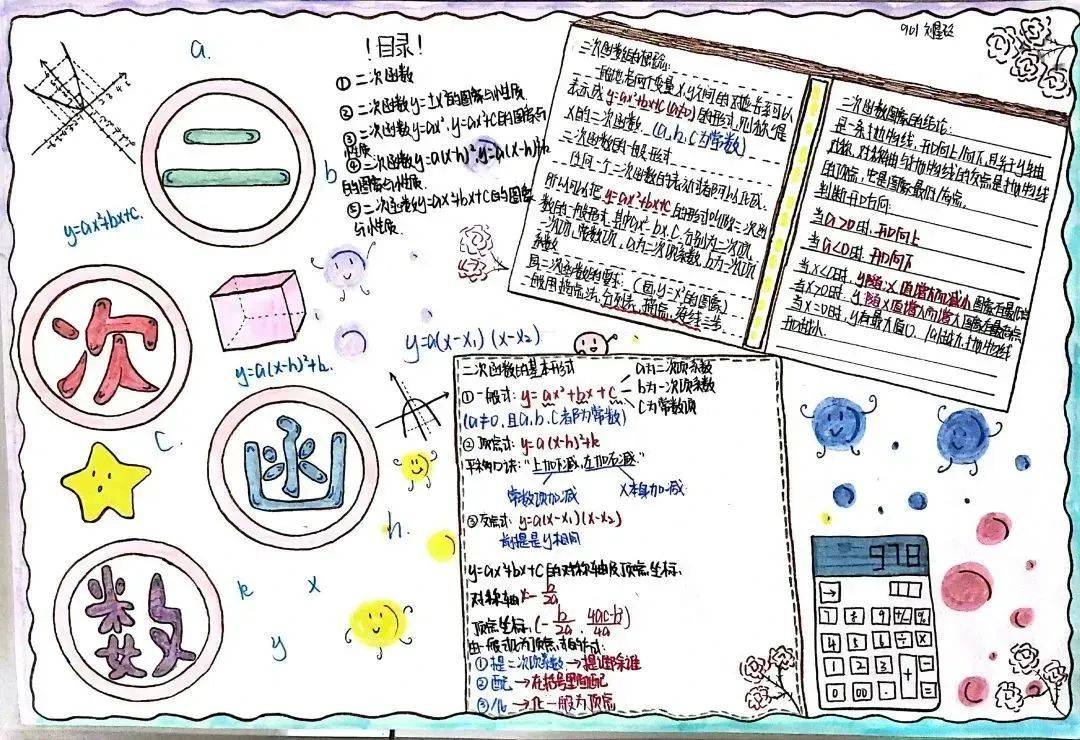 a.
！目录！
① 二次函数
② 二次函数y=±x²的图象与性质
③ 二次函数y=ax²，y=ax²+c的图象与
性质
④ 二次函数y=a(x-h)²，y=a(x-h)²+k
的图象与性质.
⑤ 二次函数y=ax²+bx+c的图象
与性质.
901
二
次
函
数
b
y=ax²+bx+c.
y=a(x-h)²+k.
y=a(x-x₁)(x-x₂)
c.
h.
k
x
y
二次函数的概念：
一般地，若两个变量x,y之间的对应关系可以
表示成y=ax²+bx+c(a≠0)的形式，则称y是
x的二次函数.（a,b,c为常数）
二次函数的一般形式
任何一个二次函数的表达式都可以化成
所以可以把y=ax²+bx+c的形式叫做二次函
数的一般形式，其中ax²,bx,c分别为二次项,
一次项，常数项，a为二次项系数，b为一次项
系数
画二次函数的要求：（画y=x²的图象）
一般用描点法，分列表，描点，连线三步.
二次函数图象的结论：
是一条抛物线，开口向上/向下，且关于y轴
对称，对称轴与抛物线的交点是抛物线
的顶点，它是图象最低/高点.
判断开口方向：
当a>0时，开口向上
当a<0时，开口向下
当x<0时，y随x值增大而减小
当x>0时，y随x值增大而增大
当x=0时，y有最大值0.
开口越小.
二次函数的基本形式
①一般式：y=ax²+bx+c
a为二次项系数
b为一次项系数
c为常数项
(a≠0,且a,b,c都为常数)
②顶点式：y=a(x-h)²+k
平移口诀："上加下减，左加右减"
常数项加减
x本身加减
③交点式：y=a(x-x₁)(x-x₂)
前提是y相同
y=ax²+bx+c的对称轴及顶点坐标.
对称轴x=-b/2a
顶点坐标.(-b/2a, 4ac-b²/4a)
由一般式化为顶点式的方式：
①提二次项系数→
②配→在括号里面配
③化→化一般为顶点
978
→
7 8 9 +/- %
4 5 6 ÷ ×
1 2 3 + -
0 00 . =